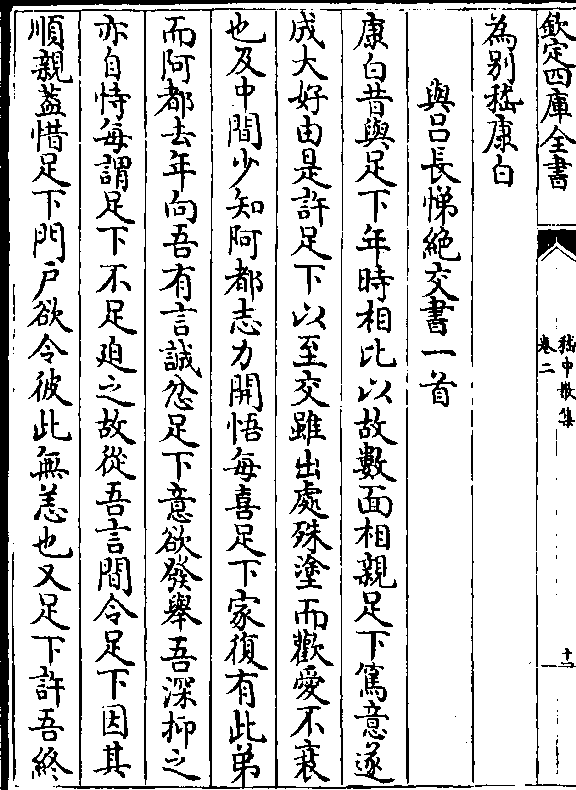 欽定四庫全書
嵇中散集
卷二
十一
為别嵇康白
與吕長悌絶交書一首
康白昔與足下年時相比以故數面相親足下篤意遂
成大好由是許足下以至交雖出處殊塗而歡愛不衰
也及中間少知阿都志力開悟每喜足下家復有此弟
而阿都去年向吾有言誠忿足下意欲發舉吾深抑之
亦自恃每謂足下不足迫之故從吾言間令足下因其
順親葢惜足下門戶欲令彼此無恙也又足下許吾終